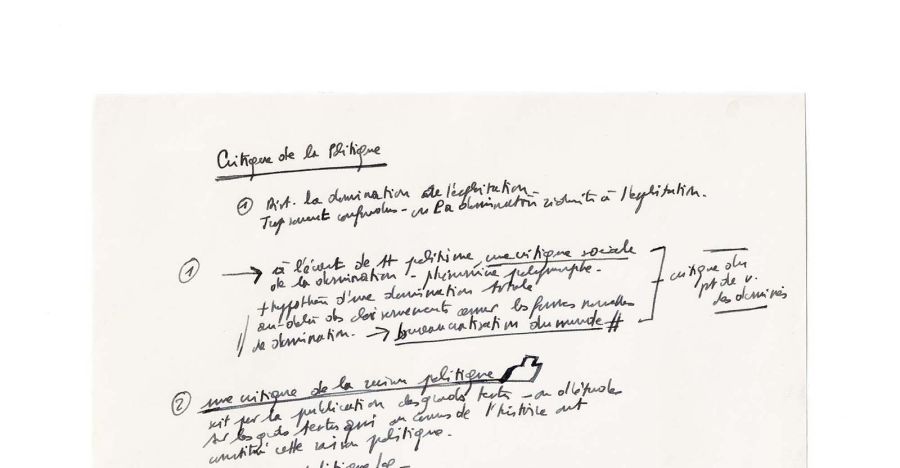 Critique de la Politique
① Dist. la domination de l'exploitation
Trop souvent confondues - ou la domination réduite à l'exploitation.
① → à l'écart de tt politisme, une critique sociale
de la domination - phénomène polymorphe -
+ hypothèse d'une domination totale
au-delà des cloisonnements cerner les formes nouvelles
de domination. → bureaucratisation du monde #
critique du
pt de v.
des dominés
② une critique de la raison politique
soit par la publication des grands textes - ou d'études
sur les grds textes qui au cours de l'histoire ont
constitué cette raison politique.